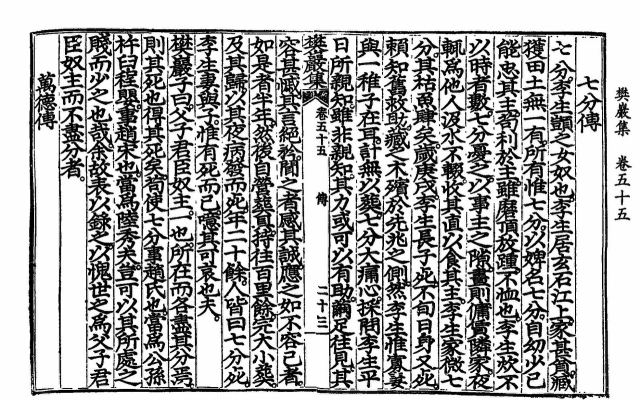 樊巖集 卷五十五
七分傳
七分李生顗之女奴也李生居玄石江上家甚貧臧
獲田土無一有所有惟七分以婢名七分自幼少已
能忠其主苟利於主雖磨頂放踵不恤也李生炊不
以時者數七分憂之以事主之隙晝則傭債隣家夜
輒爲他人汲水不輟收其直以食其主李生家微七
分其枯魚肆矣歲庚戌李生長子死不旬日身又死
賴知舊救助藏之木殯於先兆之側然李生惟寡妻
與一稚子在耳計無以葬七分大痛心採問李生平
日所親知雖非親知其力或可以有助繭足往見其
樊巖集 卷五十五 傳 二十三
容甚慽其言絕矜聞之者感其誠應之如不容已者
如是者半年然後自營葬具持往百里餘完大小葬
及其歸以其夜病發而死年二十餘人皆曰七分死
李生妻與子惟有死而已噫其可哀也夫
樊巖子曰父子君臣奴主一也所在而各盡其分焉
則其死也得其死矣苟使七分事趙氏也當爲公孫
杵臼程嬰事趙宋也當爲陸秀夫豈可以其所處之
賤而少之也哉余故表以錄之以愧世之爲父子君
臣奴主而不盡分者
萬德傳